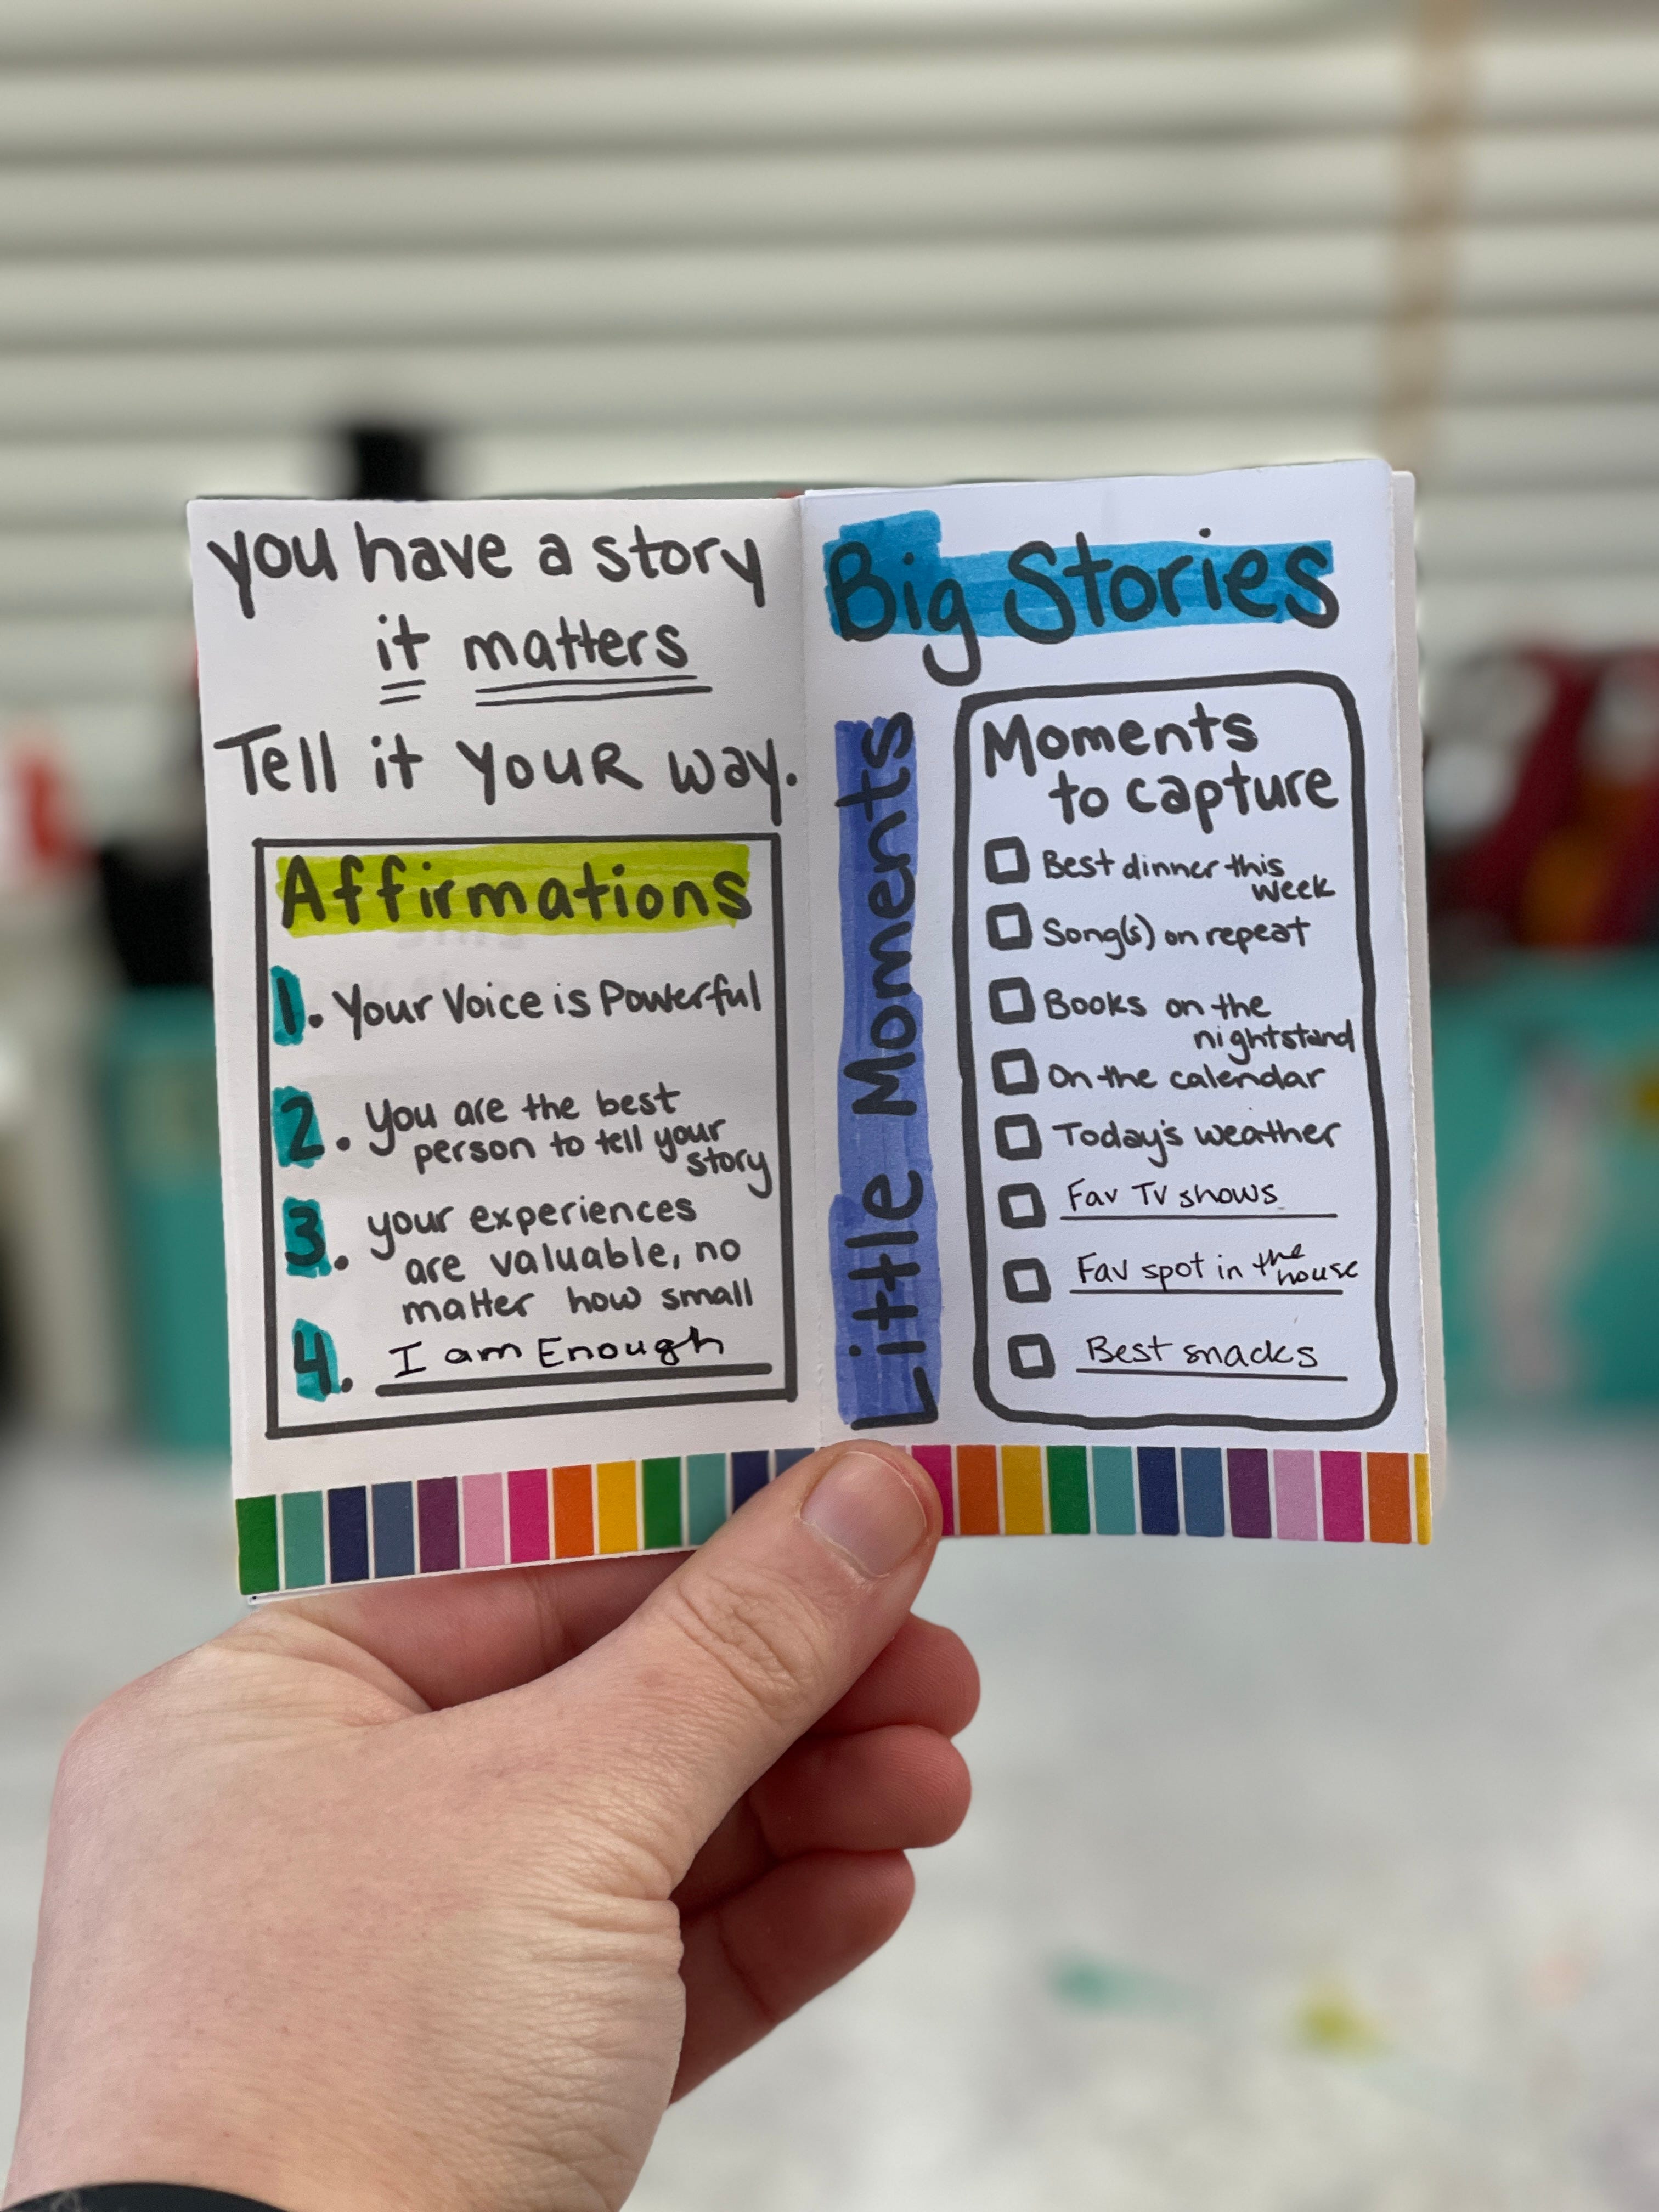 you have a story
it matters
Tell it YOUR way.
Affirmations
1. Your Voice is Powerful
2. you are the best
person to tell your
story
3. your experiences
are valuable, no
matter how small
4. I am Enough
Big Stories
Little Moments
Moments
to capture
Best dinner this
week
Song(s) on repeat
Books on the
nightstand
On the calendar
Today's weather
Fav TV shows
Fav spot in the
house
Best snacks